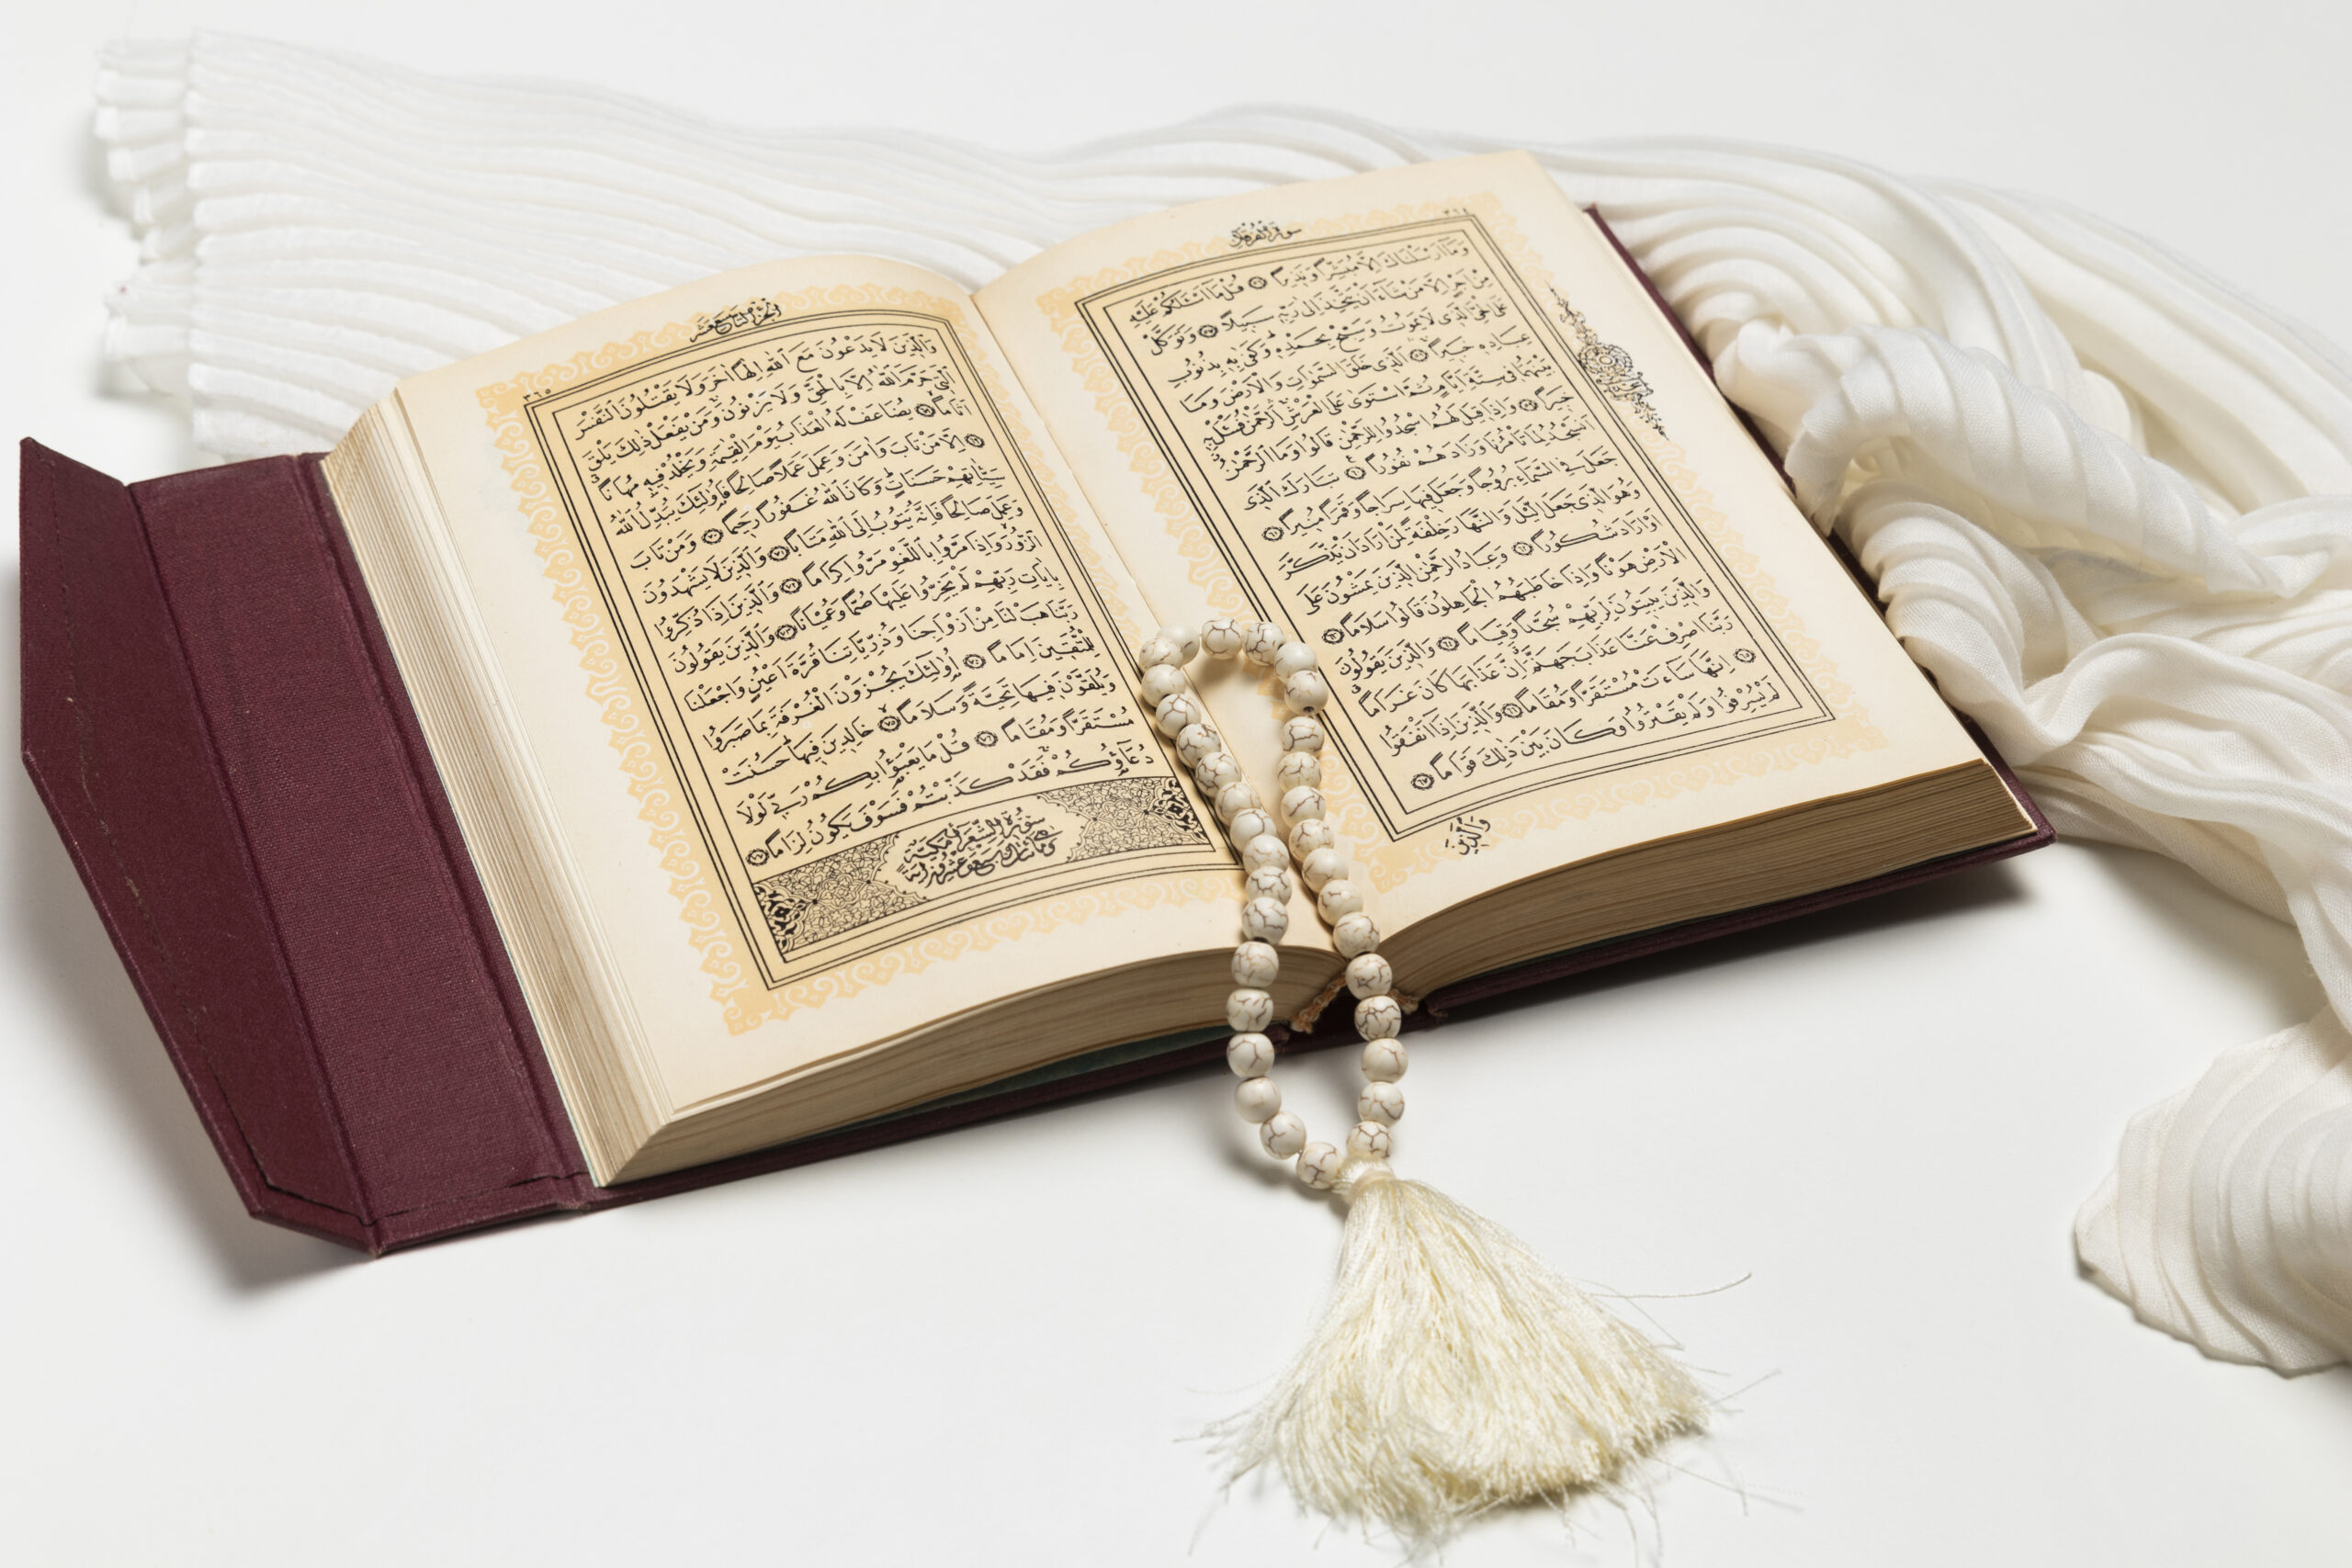 سورة الفرقان
٣٦٤
وَمَٓا اَرْسَلْنَاكَ اِلَّا مُبَشِّرًا وَنَذ۪يرًا ﴿٥٦﴾ قُلْ مَٓا اَسْـَٔلُكُمْ عَلَيْهِ
مِنْ اَجْرٍ اِلَّا مَنْ شَٓاءَ اَنْ يَتَّخِذَ اِلٰى رَبِّه۪ سَب۪يلًا ﴿٥٧﴾ وَتَوَكَّلْ
عَلَى الْحَيِّ الَّذ۪ي لَا يَمُوتُ وَسَبِّحْ بِحَمْدِه۪ وَكَفٰى بِه۪ بِذُنُوبِ
عِبَادِه۪ خَب۪يرًا ﴿٥٨﴾ اَلَّذ۪ي خَلَقَ السَّمٰوَاتِ وَالْاَرْضَ وَمَا
بَيْنَهُمَا ف۪ي سِتَّةِ اَيَّامٍ ثُمَّ اسْتَوٰى عَلَى الْعَرْشِ اَلرَّحْمٰنُ فَسْـَٔلْ بِه۪
خَب۪يرًا ﴿٥٩﴾ وَاِذَا ق۪يلَ لَهُمُ اسْجُدُوا لِلرَّحْمٰنِ قَالُوا وَمَا الرَّحْمٰنُ
اَنَسْجُدُ لِمَا تَأْمُرُنَا وَزَادَهُمْ نُفُورًا ﴿٦٠﴾ تَبَارَكَ الَّذ۪ي
جَعَلَ فِي السَّمَٓاءِ بُرُوجًا وَجَعَلَ ف۪يهَا سِرَاجًا وَقَمَرًا مُن۪يرًا ﴿٦١﴾
وَهُوَ الَّذ۪ي جَعَلَ الَّيْلَ وَالنَّهَارَ خِلْفَةً لِمَنْ اَرَادَ اَنْ يَذَّكَّرَ
اَوْ اَرَادَ شُكُورًا ﴿٦٢﴾ وَعِبَادُ الرَّحْمٰنِ الَّذ۪ينَ يَمْشُونَ عَلَى
الْاَرْضِ هَوْنًا وَاِذَا خَاطَبَهُمُ الْجَاهِلُونَ قَالُوا سَلَامًا ﴿٦٣﴾
وَالَّذ۪ينَ يَب۪يتُونَ لِرَبِّهِمْ سُجَّدًا وَقِيَامًا ﴿٦٤﴾ وَالَّذ۪ينَ يَقُولُونَ
رَبَّنَا اصْرِفْ عَنَّا عَذَابَ جَهَنَّمَ اِنَّ عَذَابَهَا كَانَ غَرَامًا
﴿٦٥﴾ اِنَّهَا سَٓاءَتْ مُسْتَقَرًّا وَمُقَامًا ﴿٦٦﴾ وَالَّذ۪ينَ اِذَٓا اَنْفَقُوا
لَمْ يُسْرِفُوا وَلَمْ يَقْتُرُوا وَكَانَ بَيْنَ ذٰلِكَ قَوَامًا ﴿٦٧﴾
وَالَّذ۪ينَ
الجزء التاسع عشر
٣٦٥
وَالَّذ۪ينَ لَا يَدْعُونَ مَعَ اللّٰهِ اِلٰهًا اٰخَرَ وَلَا يَقْتُلُونَ النَّفْسَ
الَّت۪ي حَرَّمَ اللّٰهُ اِلَّا بِالْحَقِّ وَلَا يَزْنُونَ وَمَنْ يَفْعَلْ ذٰلِكَ يَلْقَ
اَثَامًا ﴿٦٨﴾ يُضَاعَفْ لَهُ الْعَذَابُ يَوْمَ الْقِيٰمَةِ وَيَخْلُدْ ف۪يه۪ مُهَانًا
﴿٦٩﴾ اِلَّا مَنْ تَابَ وَاٰمَنَ وَعَمِلَ عَمَلًا صَالِحًا فَاُو۬لٰٓئِكَ يُبَدِّلُ اللّٰهُ
سَيِّـَٔاتِهِمْ حَسَنَاتٍ وَكَانَ اللّٰهُ غَفُورًا رَح۪يمًا ﴿٧٠﴾ وَمَنْ تَابَ
وَعَمِلَ صَالِحًا فَاِنَّهُ يَتُوبُ اِلَى اللّٰهِ مَتَابًا ﴿٧١﴾ وَالَّذ۪ينَ لَا يَشْهَدُونَ
الزُّورَ وَاِذَا مَرُّوا بِاللَّغْوِ مَرُّوا كِرَامًا ﴿٧٢﴾ وَالَّذ۪ينَ اِذَا ذُكِّرُوا
بِاٰيَاتِ رَبِّهِمْ لَمْ يَخِرُّوا عَلَيْهَا صُمًّا وَعُمْيَانًا ﴿٧٣﴾ وَالَّذ۪ينَ يَقُولُونَ
رَبَّنَا هَبْ لَنَا مِنْ اَزْوَاجِنَا وَذُرِّيَّاتِنَا قُرَّةَ اَعْيُنٍ وَاجْعَلْنَا
لِلْمُتَّق۪ينَ اِمَامًا ﴿٧٤﴾ اُو۬لٰٓئِكَ يُجْزَوْنَ الْغُرْفَةَ بِمَا صَبَرُوا
وَيُلَقَّوْنَ ف۪يهَا تَحِيَّةً وَسَلَامًا ﴿٧٥﴾ خَالِد۪ينَ ف۪يهَا حَسُنَتْ
مُسْتَقَرًّا وَمُقَامًا ﴿٧٦﴾ قُلْ مَا يَعْبَؤُ۬ا بِكُمْ رَبّ۪ي لَوْلَا
دُعَٓاؤُ۬كُمْ فَقَدْ كَذَّبْتُمْ فَسَوْفَ يَكُونُ لِزَامًا ﴿٧٧﴾
سورة الشعراء مكية
وهي مائتان وسبع وعشرون اية